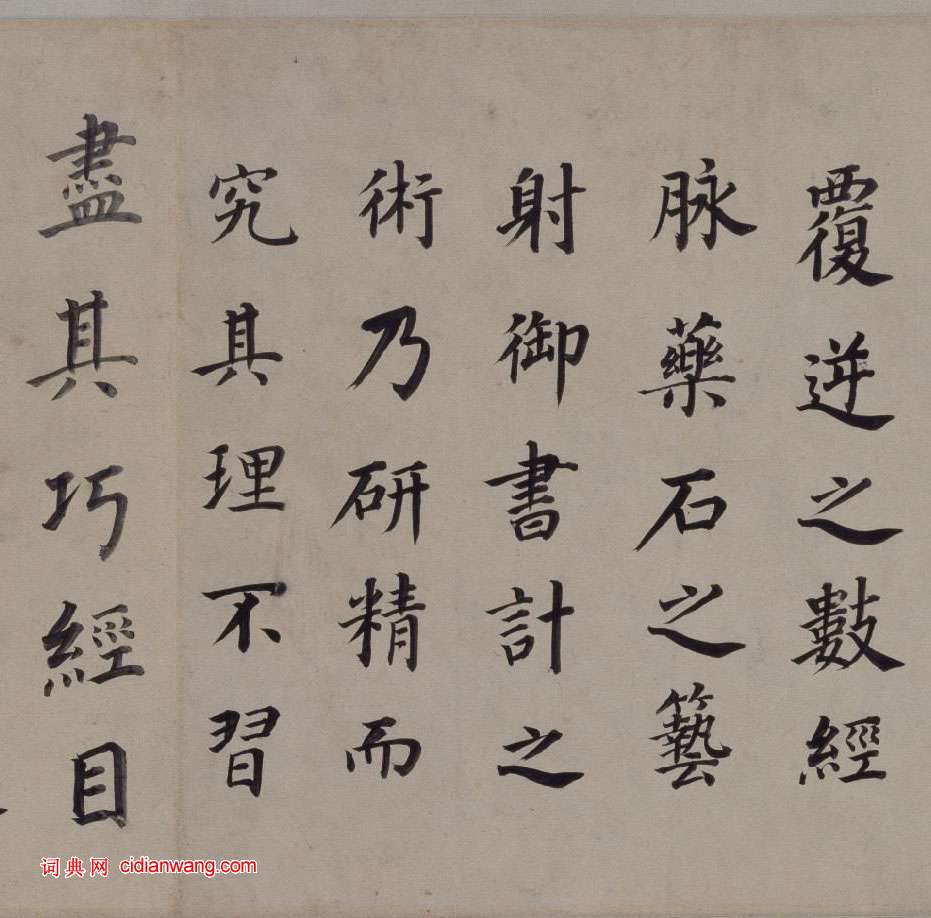 覆逆之數經
脉藥石之藝
射御書計之
術乃研精而
究其理不習
盡其巧經目
词典网 cidianwang.com